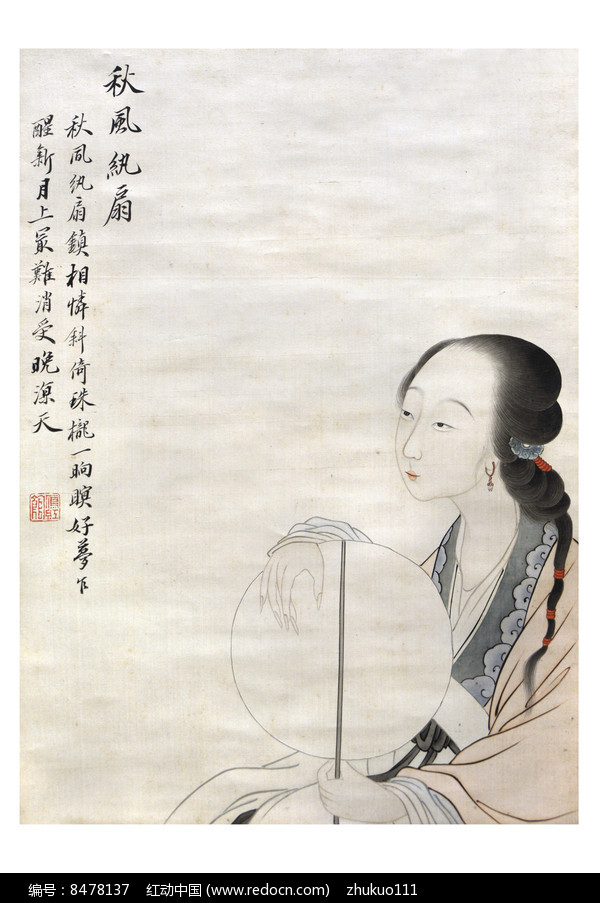 秋風紈扇
秋風紈扇鎮相憐斜倚珠櫳一晌瞑好夢乍
醒新月上冣難消受晚涼天
编号:8478137 红动中国 (www.redocn.com) zhukuo111